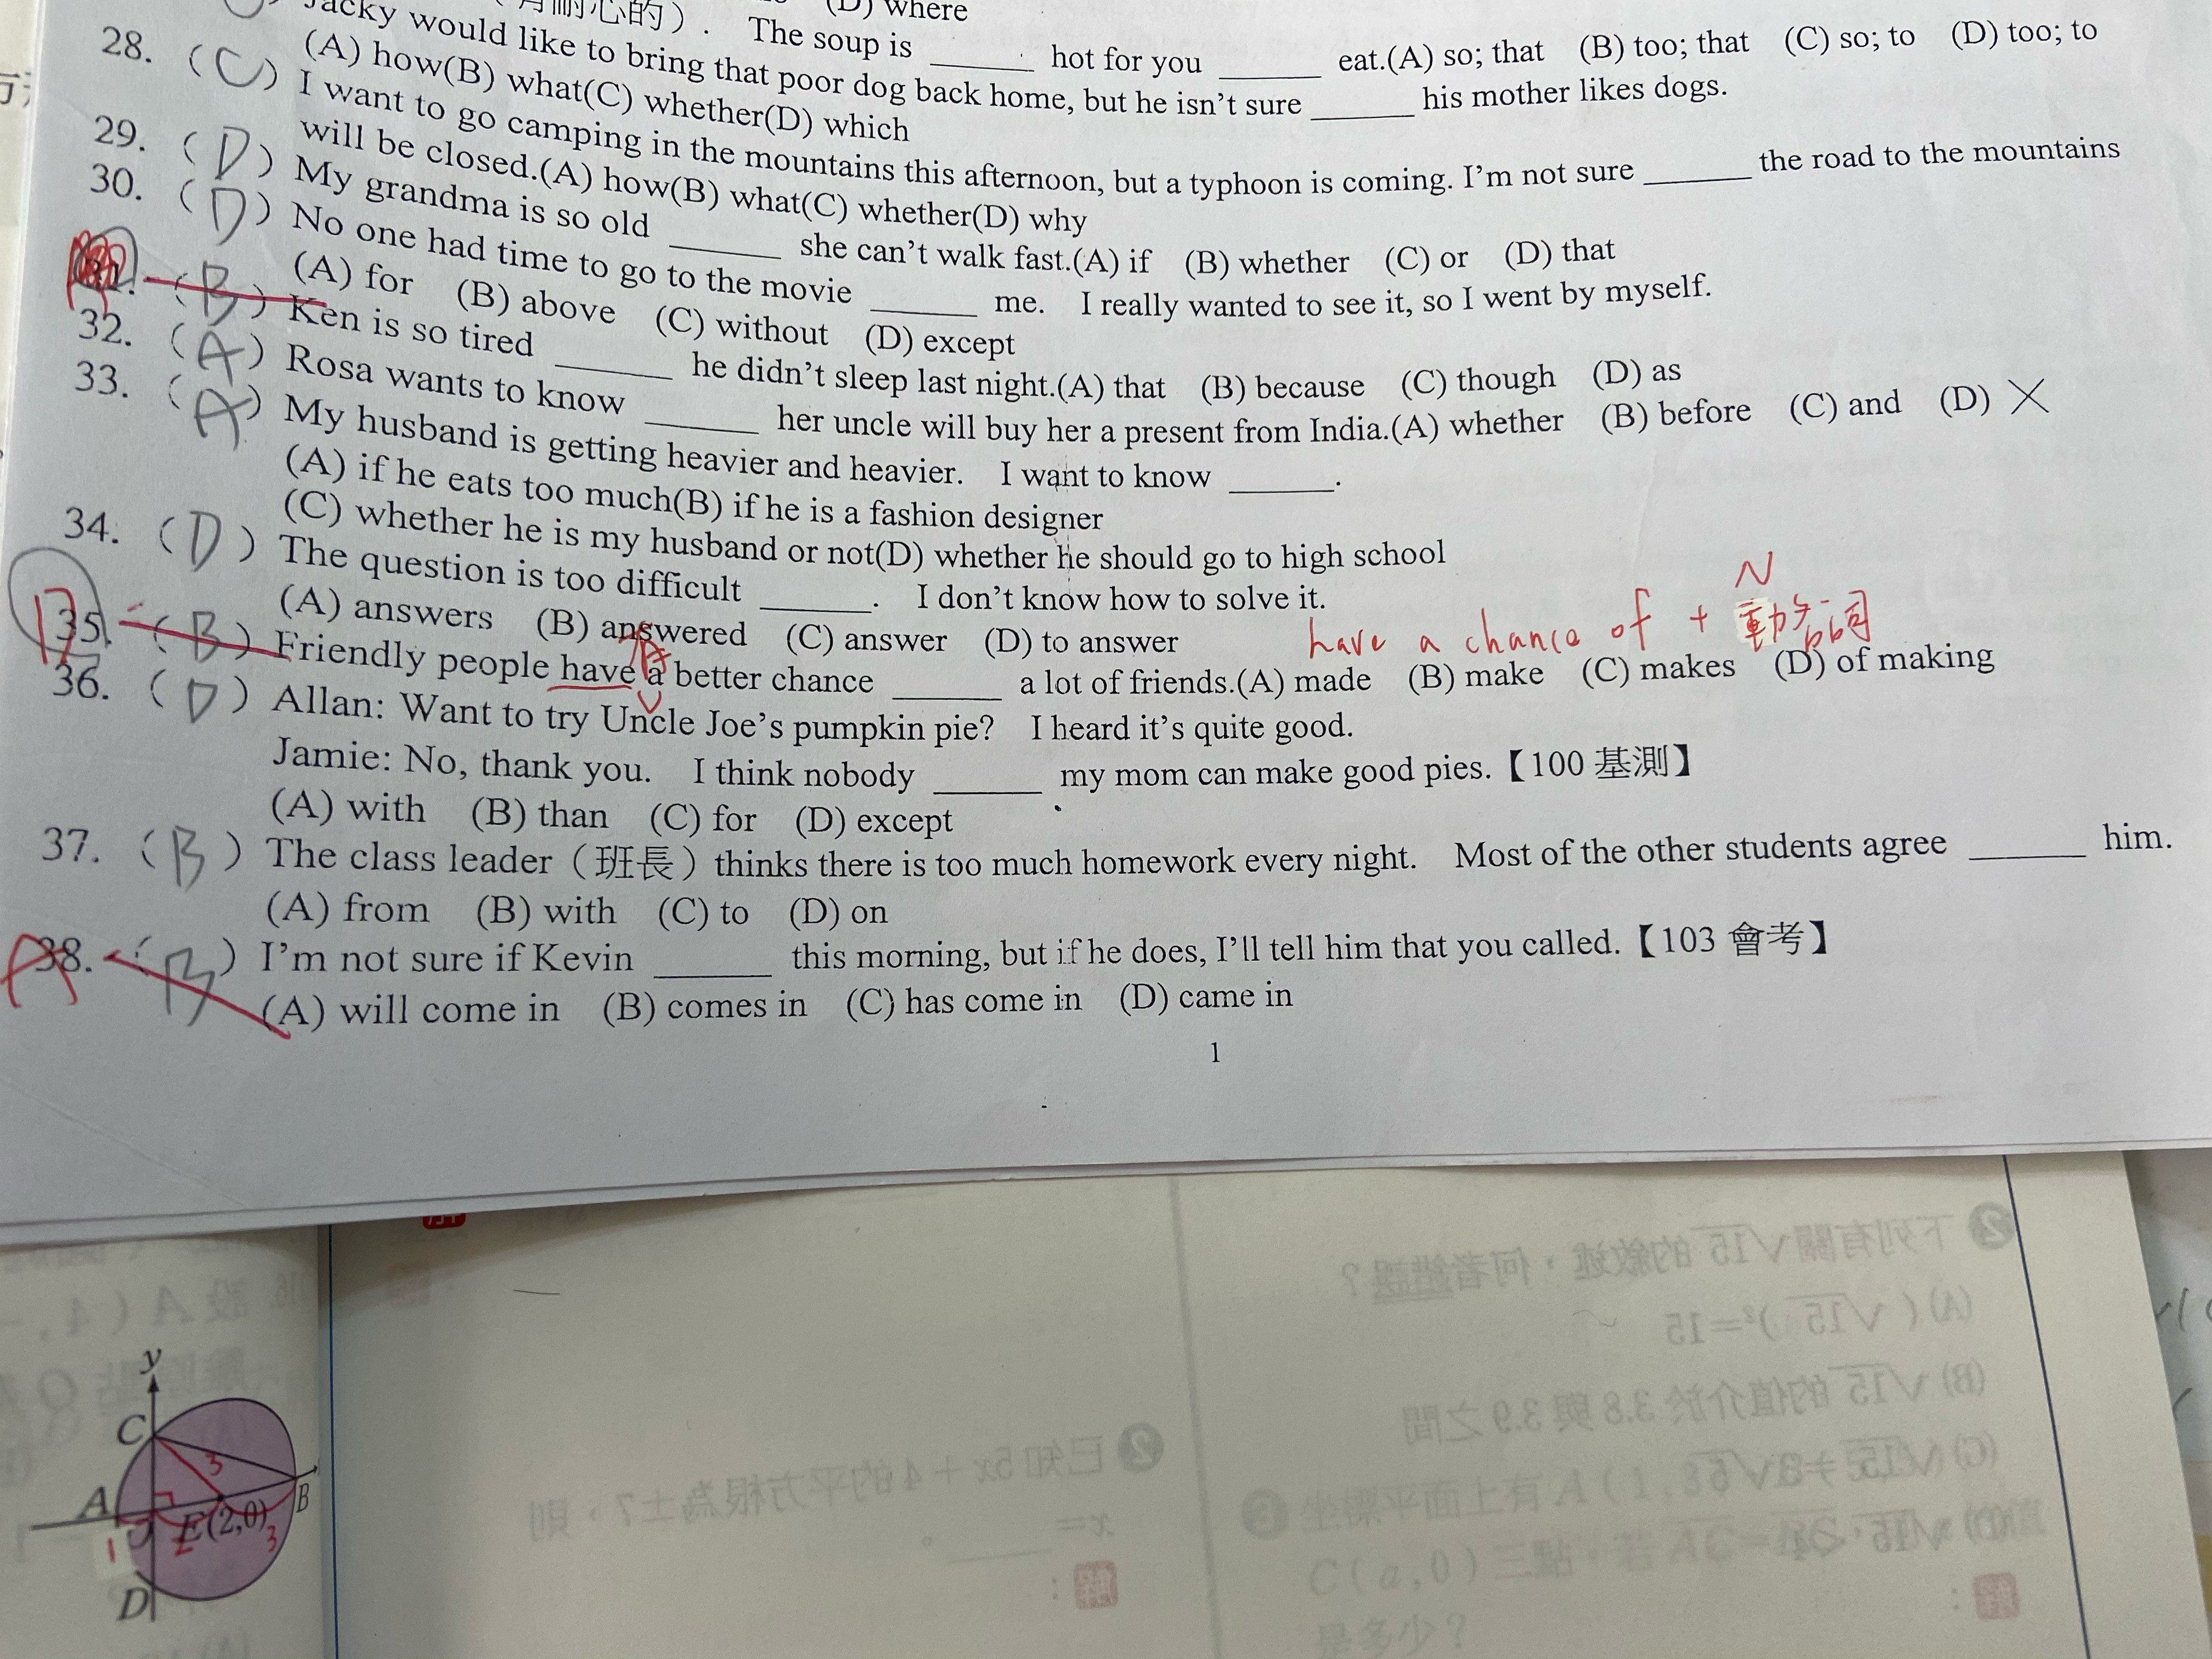 (D) where
（有耐心的）. The soup is ______ hot for you ______ eat.(A) so; that (B) too; that (C) so; to (D) too; to
28. (C) Jacky would like to bring that poor dog back home, but he isn't sure ______ his mother likes dogs.
(A) how(B) what(C) whether(D) which
I want to go camping in the mountains this afternoon, but a typhoon is coming. I'm not sure ______ the road to the mountains
will be closed.(A) how(B) what(C) whether(D) why
29. (D) My grandma is so old ______ she can't walk fast.(A) if (B) whether (C) or (D) that
30. (D) No one had time to go to the movie ______ me. I really wanted to see it, so I went by myself.
(A) for (B) above (C) without (D) except
31. (B) Ken is so tired ______ he didn't sleep last night.(A) that (B) because (C) though (D) as
32. (A) Rosa wants to know ______ her uncle will buy her a present from India.(A) whether (B) before (C) and (D) ╳
33. (A) My husband is getting heavier and heavier. I want to know ______.
(A) if he eats too much(B) if he is a fashion designer
(C) whether he is my husband or not(D) whether he should go to high school
34. (D) The question is too difficult ______. I don't know how to solve it.
(A) answers (B) answered (C) answer (D) to answer
N
have a chance of + 動名詞
D 35. (B) Friendly people have a better chance ______ a lot of friends.(A) made (B) make (C) makes (D) of making
36. (D) Allan: Want to try Uncle Joe's pumpkin pie? I heard it's quite good.
Jamie: No, thank you. I think nobody ______ my mom can make good pies.【100 基測】
(A) with (B) than (C) for (D) except
37. (B) The class leader（班長）thinks there is too much homework every night. Most of the other students agree ______ him.
(A) from (B) with (C) to (D) on
A 38. (B) I'm not sure if Kevin ______ this morning, but if he does, I'll tell him that you called.【103 會考】
(A) will come in (B) comes in (C) has come in (D) came in
1
❷ 下列有關√15 的敘述，何者錯誤？
(A) (√15)²=15
(B) √15 的值介於 3.8 與 3.9 之間
❷ 已知 5x+4 的平方根為±7，則
x= ______。
解：
❸ 坐標平面上有 A(1,
C(a,0) 三點，若 AC=
是多少？
解：
16. 設 A(4,
y
C
3
A
B
E(2,0)
1
3
D